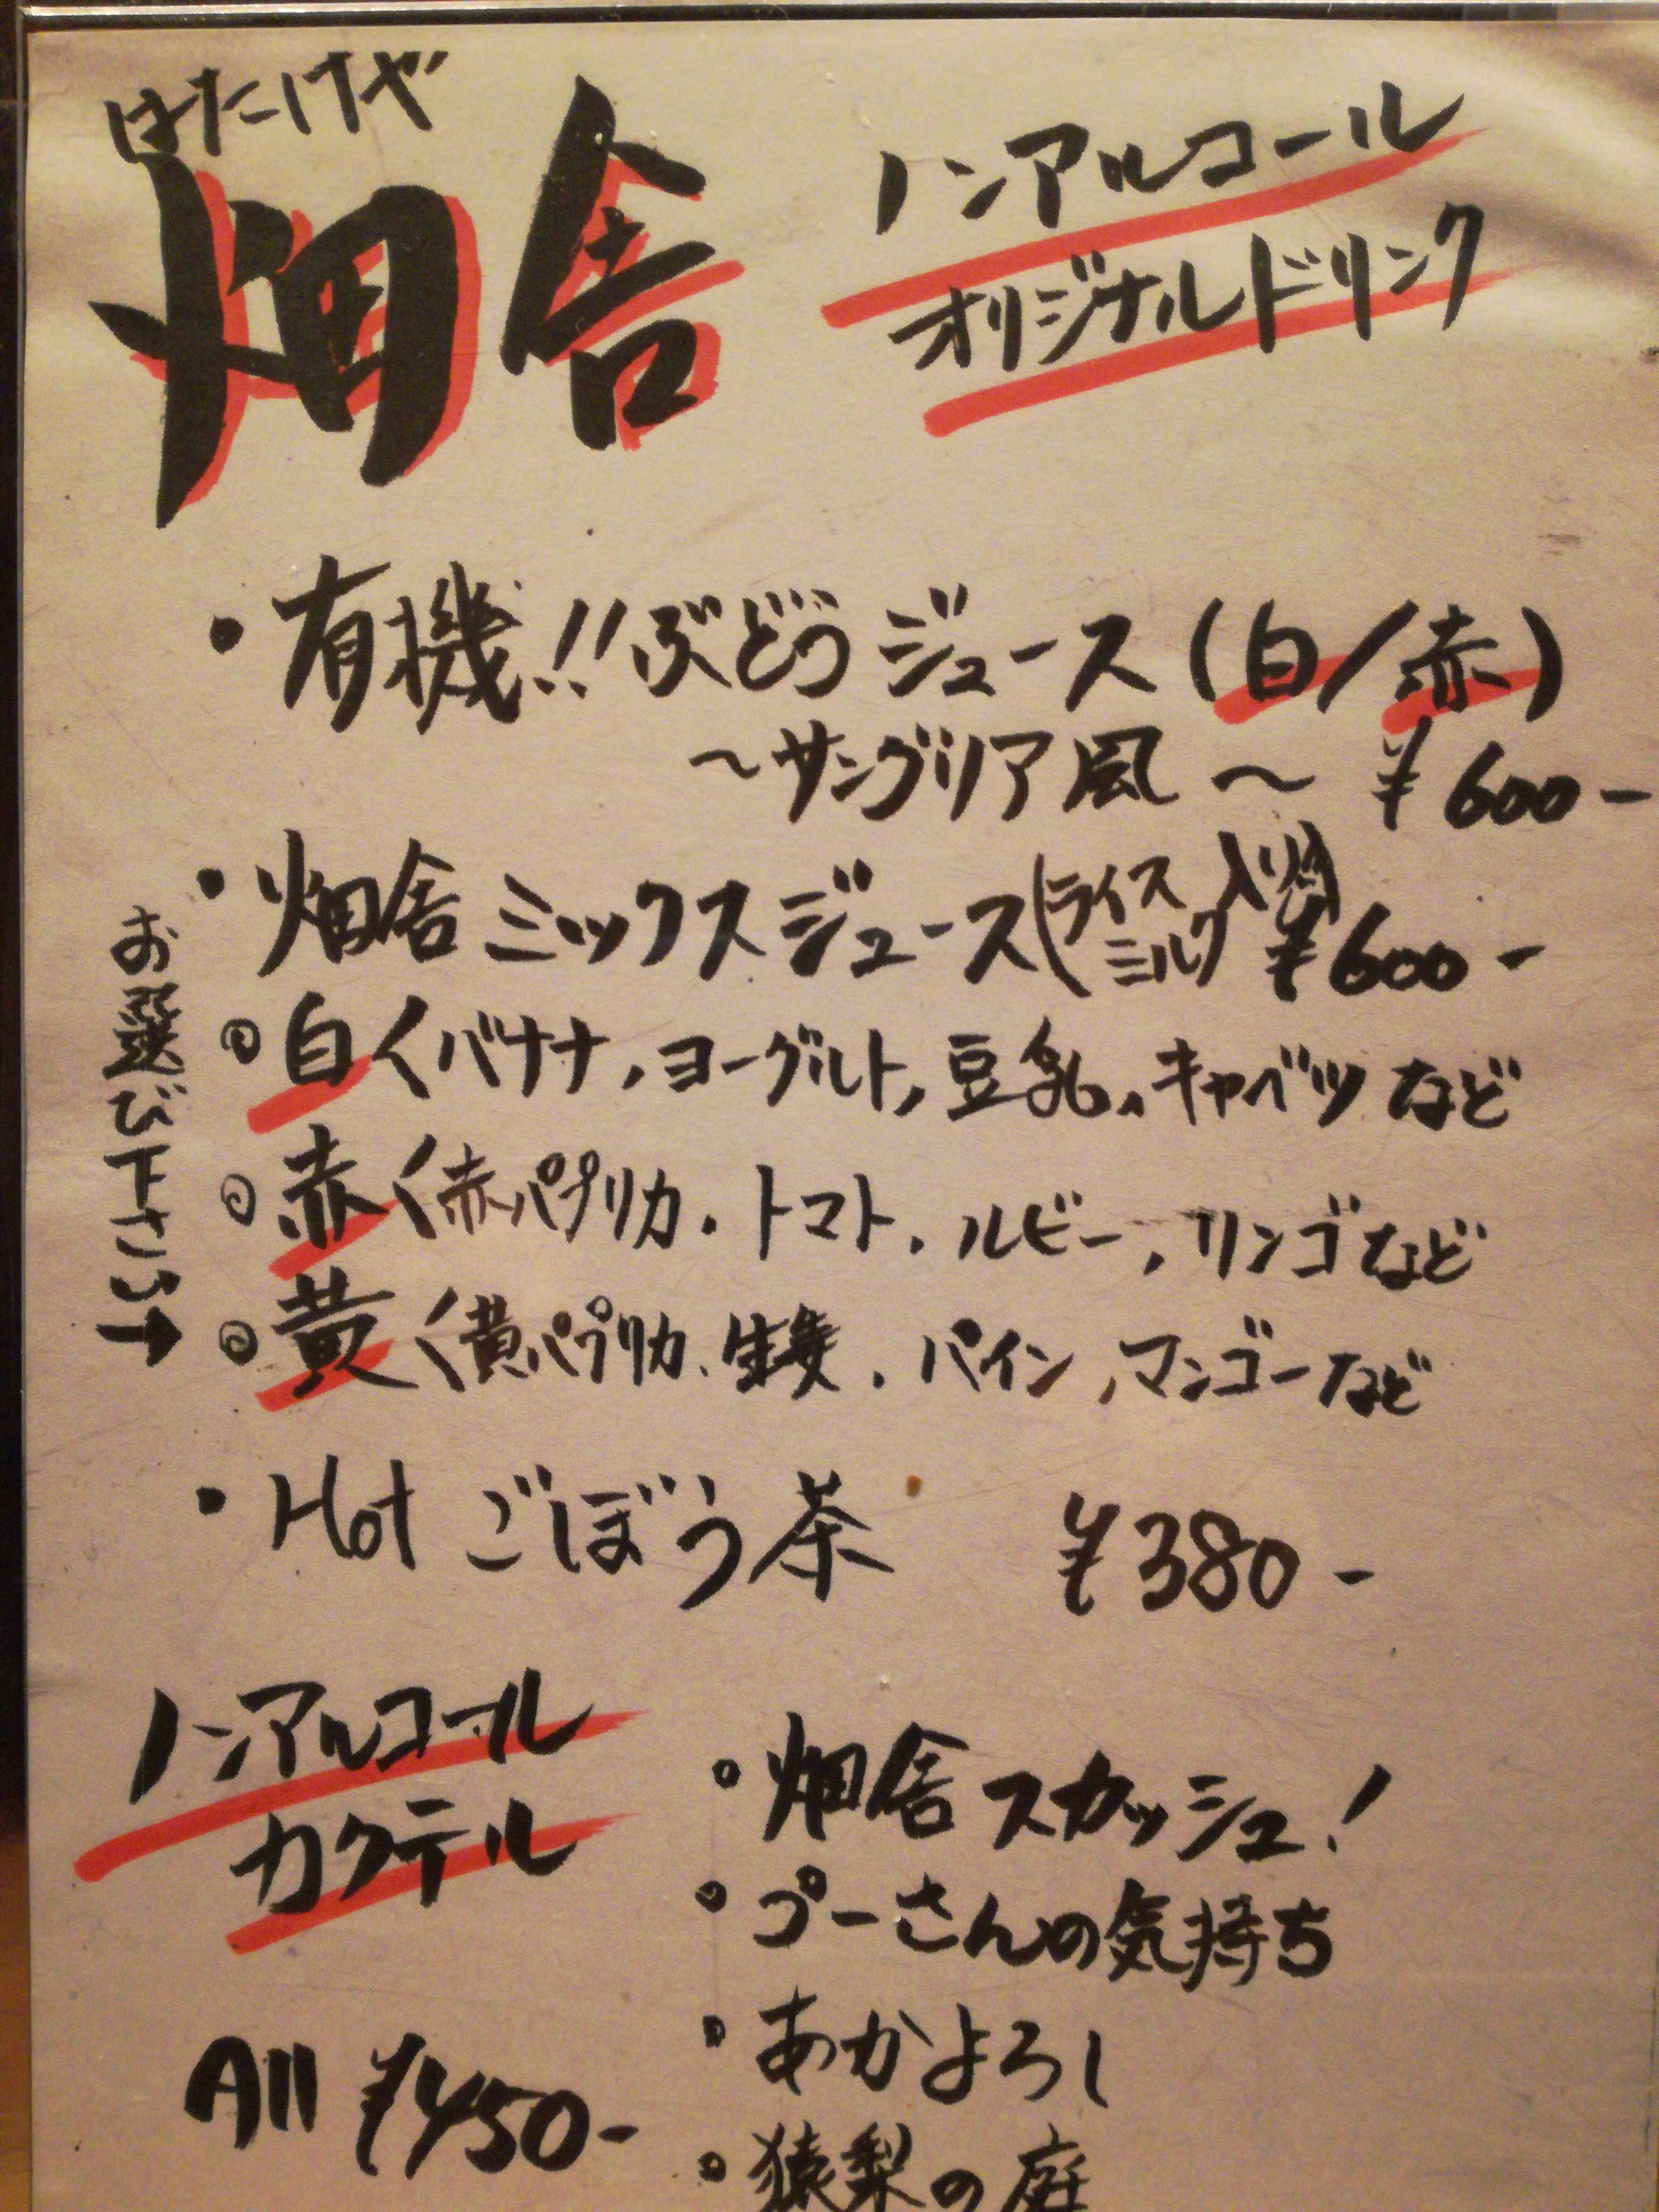 はたけや
畑舎
ノンアルコール
オリジナルドリンク
・有機!!ぶどうジュース(白/赤)
〜サングリア風〜 ¥600-
・畑舎ミックスジュース(ライスミルク入り) ¥600-
お選び下さい→
◎白くバナナ,ヨーグルト,豆乳,キャベツなど
◎赤く赤パプリカ.トマト.ルビー,リンゴなど
◎黄く黄パプリカ.生姜.パイン,マンゴーなど
・Hot ごぼう茶 ¥380-
ノンアルコール
カクテル
All ¥450-
・畑舎スカッシュ!
・プーさんの気持ち
・あかよろし
・猿梨の庭